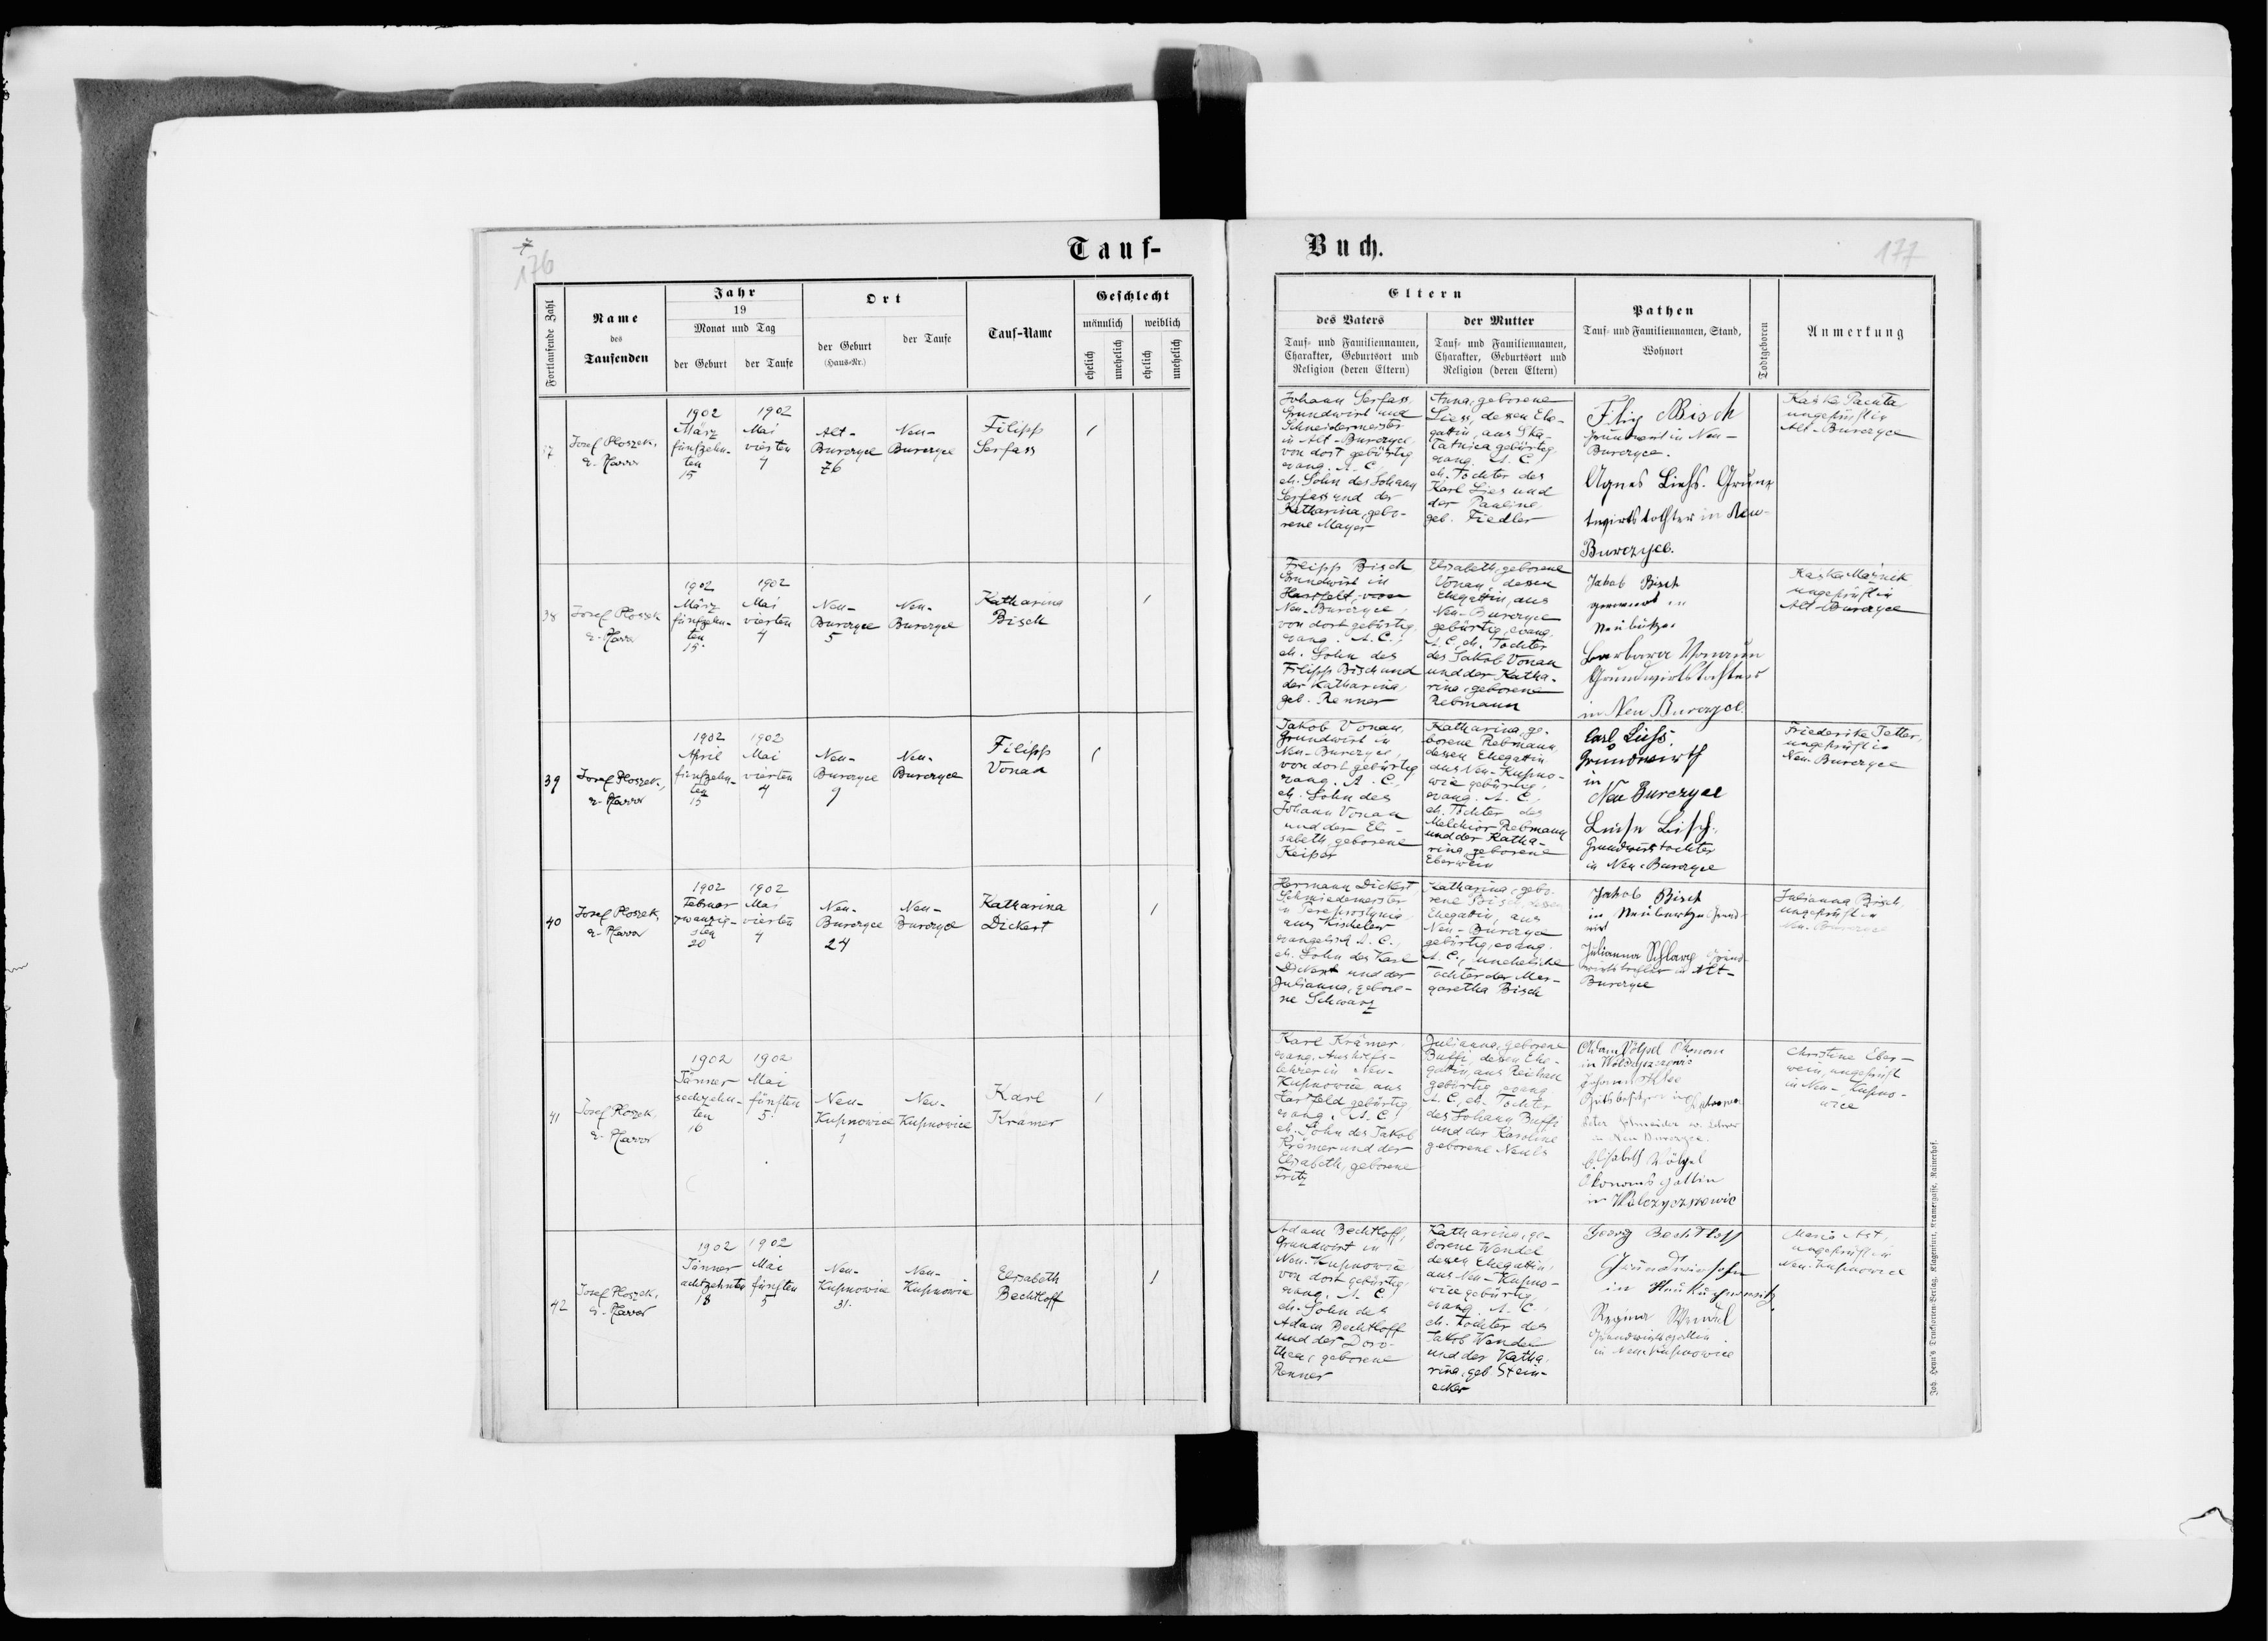 176
Tauf-
Fortlaufende Zahl
Name
des
Taufenden
Jahr
19
Monat und Tag
der Geburt
der Taufe
Ort
der Geburt
(Haus-Nr.)
der Taufe
Tauf-Name
Geschlecht
männlich
weiblich
ehelich
unehelich
ehelich
unehelich
37
Josef Ploszek,
e. Pfarrer
1902
März
fünfzehn-
ten
15
1902
Mai
vierten
4
Alt-
Burczyce
76
Neu-
Burczyce
Filipp
Serfass
38
Josef Ploszek
e. Pfarrer
1902
März
fünfzehn-
ten
15.
1902
Mai
vierten
4
Neu-
Burczyce
5
Neu-
Burczyce
Katharina
Bisch
39
Josef Ploszek,
e. Pfarrer
1902
April
fünfzehn-
ten
15
1902
Mai
vierten
4
Neu-
Burczyce
9
Neu-
Burczyce
Filipp
Vonau
40
Josef Ploszek,
e. Pfarrer
1902
Februar
zwanzig-
sten
20
1902
Mai
vierten
4
Neu-
Burczyce
24
Neu-
Burczyce
Katharina
Dickert
41
Josef Ploszek,
e. Pfarrer
1902
Jänner
sechzehn-
ten
16
1902
Mai
fünften
5
Neu-
Kupnowice
1
Neu-
Kupnowice
Karl
Krämer
42
Josef Ploszek,
e. Pfarrer
1902
Jänner
achtzehnten
18
1902
Mai
fünften
5
Neu-
Kupnowice
31.
Neu-
Kupnowice
Elisabeth
Bechtloff
Buch.
177
Eltern
des Vaters
Tauf- und Familiennamen,
Charakter, Geburtsort und
Religion (deren Eltern)
der Mutter
Tauf- und Familiennamen,
Charakter, Geburtsort und
Religion (deren Eltern)
Pathen
Tauf- und Familiennamen, Stand,
Wohnort
Todtgeboren
Anmerkung
Johann Serfass,
Grundwirt und
Schneidermeister
in Alt-Burczyce,
von dort gebürtig
evang. A. C.,
eh. Sohn des Johann
Serfass und der
Katharina, gebo-
rene Mayer
Anna, geborene
Liess, dessen Ehe-
gattin, aus
gebürtig,
evang. A. C.,
eh. Tochter des
Karl Lies und
der Pauline,
geb. Fiedler
Filip Bisch
Grundwirt in Neu-
Burczyce.
Agnes Liehs. Grun
twirtstochter in Neu-
Burczyce.
Kaśka Pacuta
ungeprüft in
Alt-Burczyce
Filipp Bisch
Grundwirt in
Hartfeld, von
Neu-Burczyce,
von dort gebürtig,
evang. A. C.,
eh. Sohn des
Filipp Bisch und
der Katharina,
geb. Renner
Elisabeth, geborene
Vonau, dessen
Ehegattin, aus
Neu-Burczyce
gebürtig, evang.
A. C., eh. Tochter
des Jakob Vonau
und der Katha-
rina, geborene
Rebmann
Jakob Bisch
in
Barbara Vonaun
Grundwirtstochter
in Neu Burczyce.
Kaśka Maźnik
ungeprüft in
Alt-Burczyce
Jakob Vonau,
Grundwirt in
Neu-Burczyce,
von dort gebürtig
evang. A. C.,
eh. Sohn des
Johann Vonau
und der Eli-
sabeth, geborene
Keiper
Katharina, ge-
borene Rebmann,
dessen Ehegattin
aus Neu-Kupno-
wice gebürtig,
evang. A. C.,
eh. Tochter des
Melchior Rebmann
und der Katha-
rina, geborene
Eberwein
Carl Liehs.
Grundwirth
in
Neu Burczyce
Luise Bisch.
Grundwirtstochter
in Neu-Burczyce
Friederike Tetter,
ungeprüft in
Neu-Burczyce
Hermann Dickert
Schmiedemeister
in
aus
evangelisch A. C.,
eh. Sohn des Karl
Dickert und der
Julianna, gebore-
ne Schwarz
Katharina, gebo-
rene Bisch, dessen
Ehegattin, aus
Neu-Burczyce
gebürtig, evang.
A. C., uneheliche
Tochter der Mar-
garetha Bisch
Jakob Bisch
in
Julianna Schlarp Grund-
wirtstochter in Alt-
Burczyce
Julianna Bisch,
ungeprüft in
Neu-Burczyce
Karl Krämer
evang. Aushilfs-
lehrer in Neu-
Kupnowice aus
Hartfeld gebürtig
evang. A. C.,
eh. Sohn des Jakob
Krämer und der
Elisabeth, geborene
Fritz
Julianna, geborene
Buffi, dessen Ehe-
gattin, aus Reichau
gebürtig, evang.
A. C., eh. Tochter
des Johann Buffi
und der Karoline
geborene Neuls
Adam Völpel Ökonom
in
Johann
Gutsbesitzer in
Peter Schneider ev. Lehrer
in Neu Burczyce.
Elisabeth Völpel
Ökonoms gattin
in
Christine Eber-
wein, ungeprüft
in Neu-Kupno-
wice
Adam Bechtloff,
Grundwirt in
Neu-Kupnowice
von dort gebürtig,
evang. A. C.,
eh. Sohn des
Adam Bechtloff
und der Doro-
thea, geborene
Renner
Katharina, ge-
borene Wendel
dessen Ehegattin,
aus Neu-Kupno-
wice gebürtig,
evang. A. C.,
eh. Tochter des
Jakob Wendel
und der Katha-
rina, geb. Stein-
ecker
Georg Bechtloff
in
Regina Wendel
Grundwirtsgattin
in Neu-Kupnowice
Maria Ast,
ungeprüft in
Neu-Kupnowice
Joh. Leon's Drucksorten-Verlag, Klagenfurt, Kramergasse, Rainerhof.